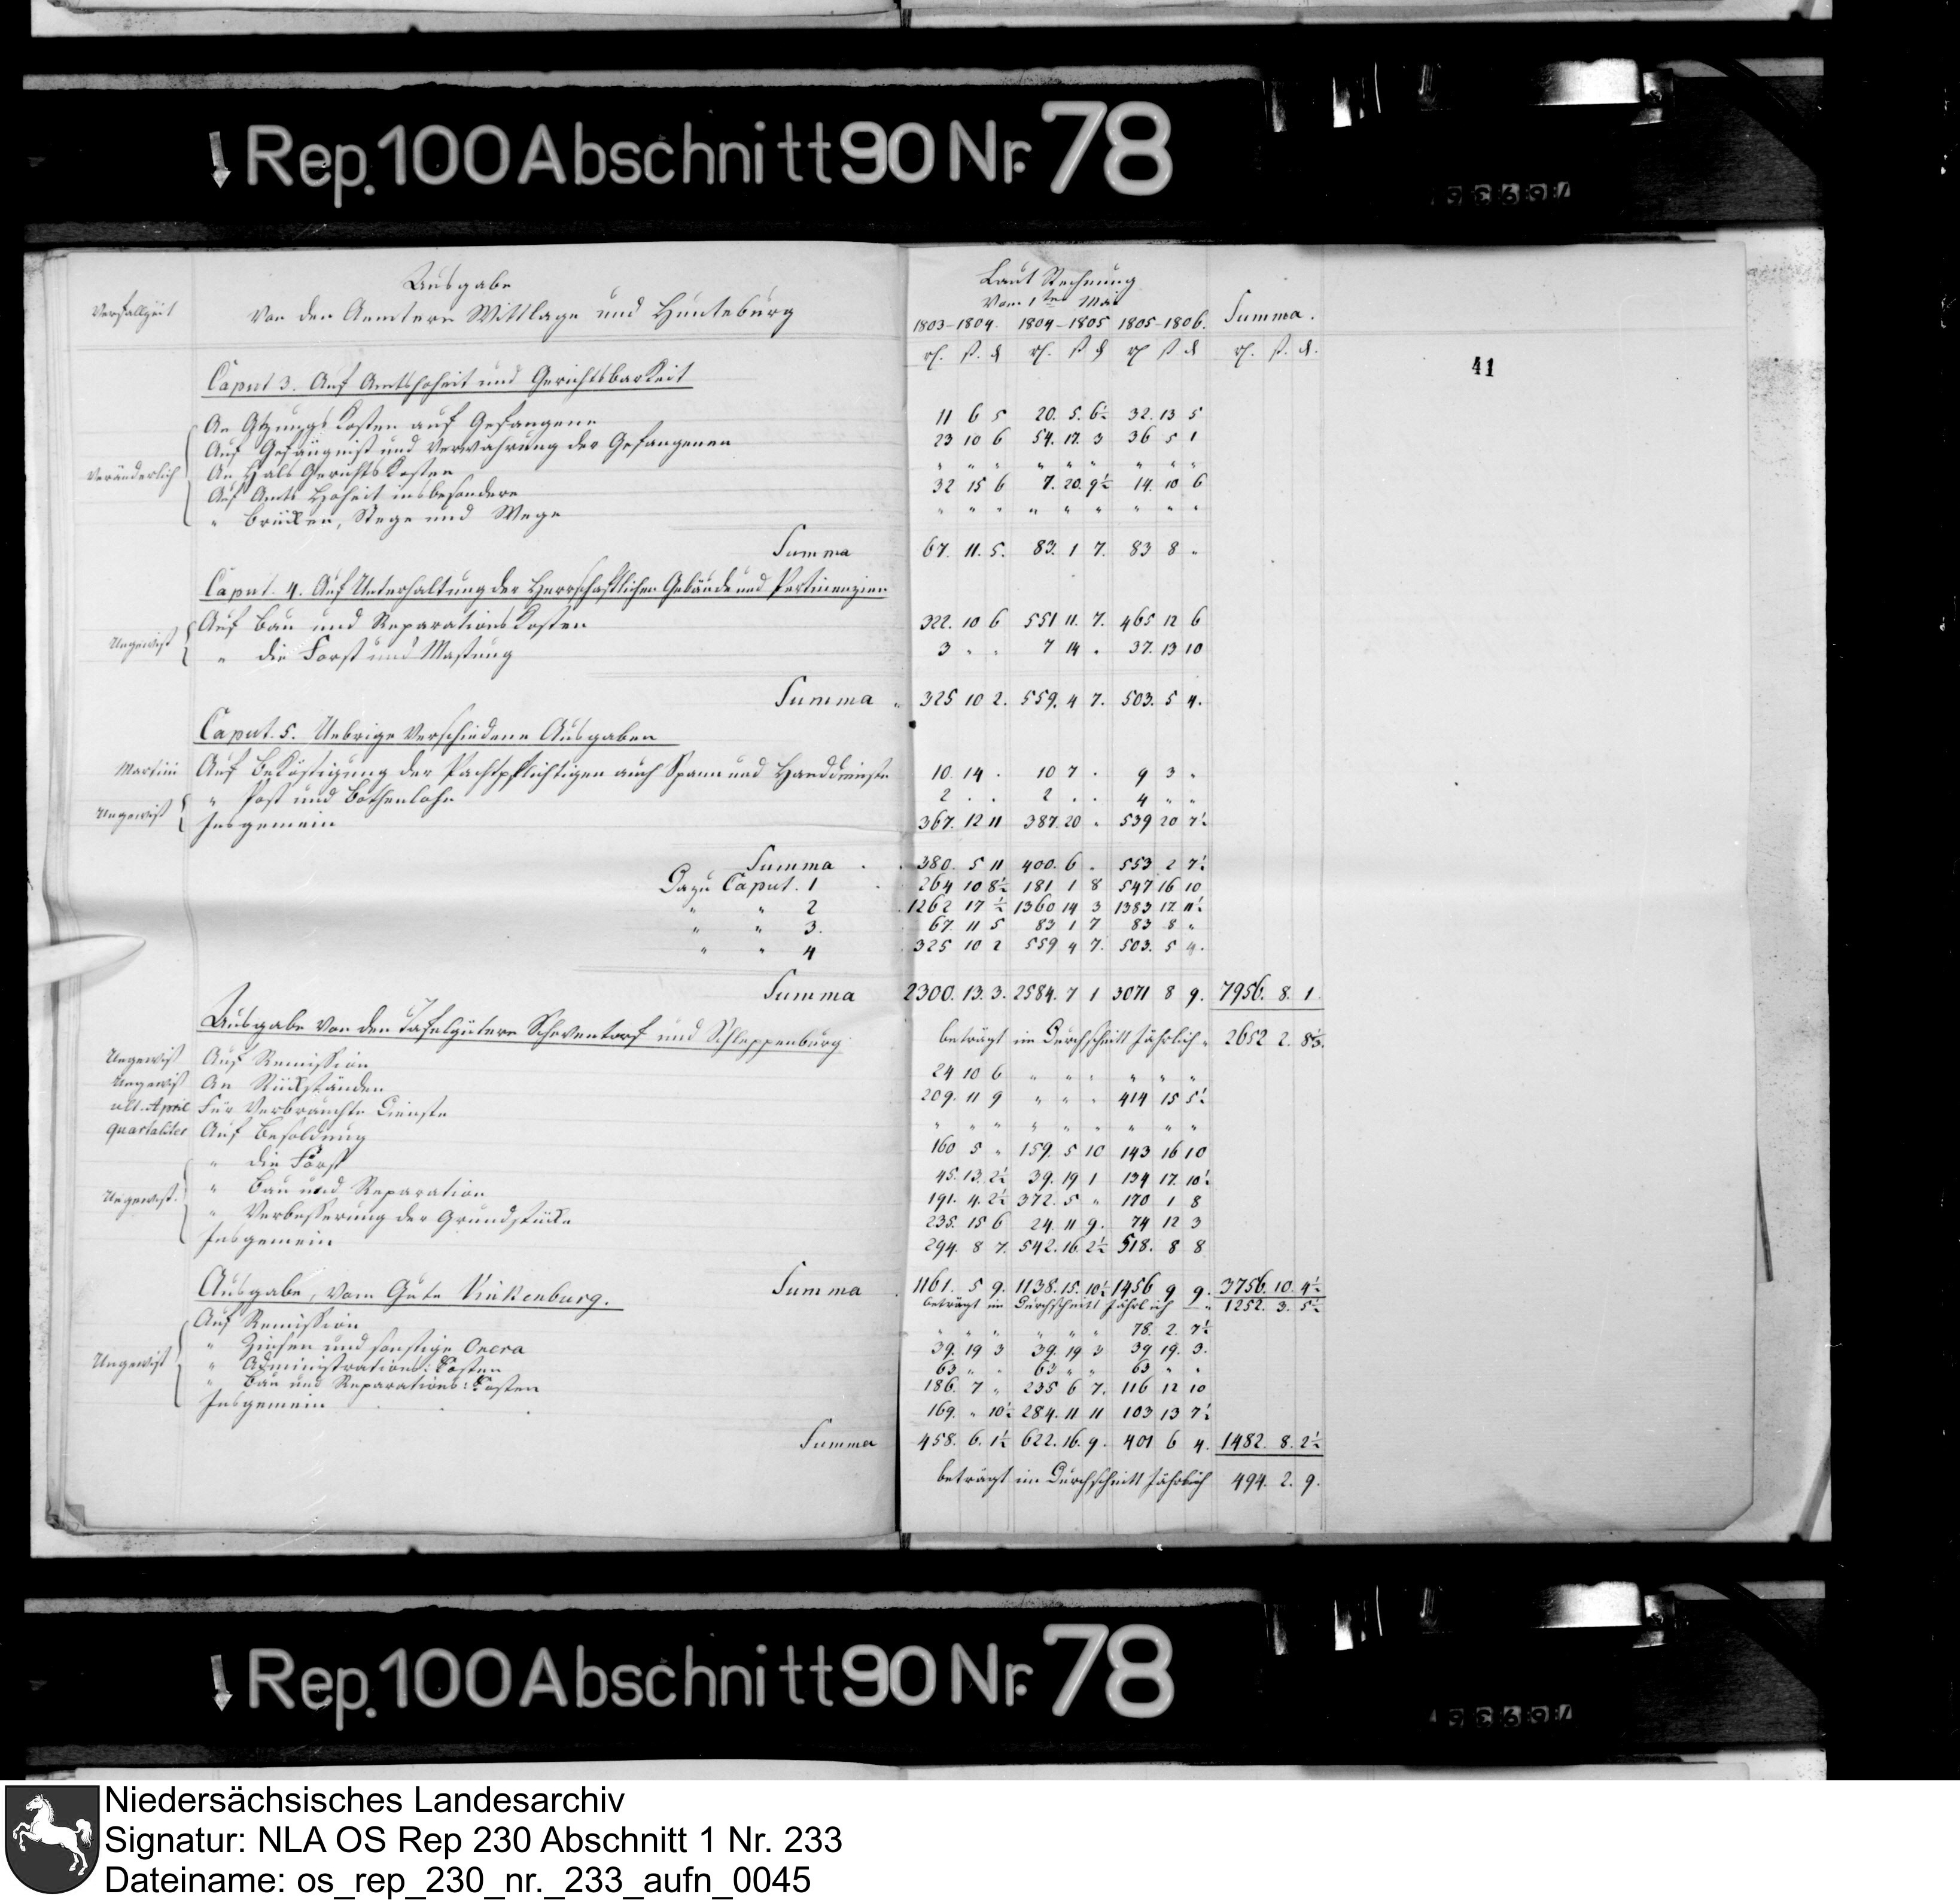 Rep. 100 Abschnitt 90 Nr. 78
Ausgabe
Laut Rechnung
Verfallzeit Von den Aemtern Wittlage und Hunteburg
Vom 1ten Mai
1803-1804. 1804-1805 1805-1806. Summa.
rl. ß. d rl. ß d rl ß d rl. ß. d.
41
Caput 3. Auf Amtshoheit und Gerichtsbarkeit
An Atzungs Kosten auf Gefangene 11 6 5 20. 5. 6½ 32. 13 5
Auf Gefängniß und Verwahrung der Gefangenen 23 10 6 54. 17 3 36 5 1
Veränderlich An Hals Gerichts Kosten " " " " " " " " "
Auf Amts Hoheit insbesondere 32 15 6 7. 20. 9½ 14. 10 6
" Brücken, Stege und Wege " " " " " " " " "
Summa 67. 11. 5. 83. 1 7. 83 8 "
Caput. 4. Auf Unterhaltung der Herrschaftlichen Gebäude und Pertinenzien
Auf Bau und Reparations Kosten 322. 10 6 551 11. 7. 465 12 6
Ungewiß
" die Forst und Mastung 3 " " 7 14 " 37. 13 10
Summa " 325 10 2. 559. 4 7. 503. 5 4.
Caput. 5. Uebrige Verschiedene Ausgaben
Martini Auf Beköstigung der Pachtpflichtigen auch Spann und Handdienste 10. 14 . 10 7 . 9 3 "
" Post und Bothenlohn 2 . . 2 . . 4 " "
Ungewiß
Insgemein 367. 12 11 387. 20 . 539 20 7½
Summa 380. 5 11 400. 6 . 553 2 7½
Dazu Caput. 1 264 10 8½ 181 1 8 547 16 10
" " 2 1262 17 ½ 1360 14 3 1383 17. 11½
" " 3. 67. 11 5 83 1 7 83 8 "
" " 4 325 10 2 559 4 7. 503. 5 4.
Summa 2300. 13. 3. 2584. 7 1 3071 8 9. 7956. 8. 1.
Ausgabe von den Tafelgütern Scheventorf und Schleppenburg
beträgt im Durchschnitt Jährlich " 2652 2. 8⅓.
Ungewiß Auf Remission 24 10 6 " " " " " "
Ungewiß An Rückständen 209. 11 9 " " " 414 15 5½
ult. April Für Verbrauchte Dienste " " " " " " " " "
quartaliter Auf Besoldung 160 5 " 159. 5 10 143 16 10
" die Forst 45. 13. 2½ 39. 19 1 134 17. 10½
Ungewiß. " Bau und Reparation 191. 4. 2½ 372. 5 " 170 1 8
" Verbesserung der Grundstücke 235. 15 6 24. 11 9. 74 12 3
Insgemein 294. 8 7. 542. 16 2½ 518. 8 8
Summa 1161. 5 9. 1138. 15. 10½ 1456 9 9. 3756. 10. 4½
Ausgabe, vom Gute Vinkenburg.
beträgt im Durchschnitt Jährlich " 1252. 3. 5½
Auf Remission " " " " " " 78. 2. 7½
" Zinsen und sonstige Onera 39. 19 3 39. 19 3 39 19. 3.
Ungewiß " Administrations: Kosten 63 " " 63 " " 63 " "
" Bau und Reparations: Kosten 186. 7 " 235 6 7. 116 12 10
Insgemein 169. " 10½ 284. 11 11 103 13 7½
Summa 458. 6. 1½ 622. 16. 9. 401 6 4. 1482. 8. 2½
beträgt im Durchschnitt Jährlich 494. 2. 9.
Rep. 100 Abschnitt 90 Nr. 78
Niedersächsisches Landesarchiv
Signatur: NLA OS Rep 230 Abschnitt 1 Nr. 233
Dateiname: os_rep_230_nr._233_aufn_0045